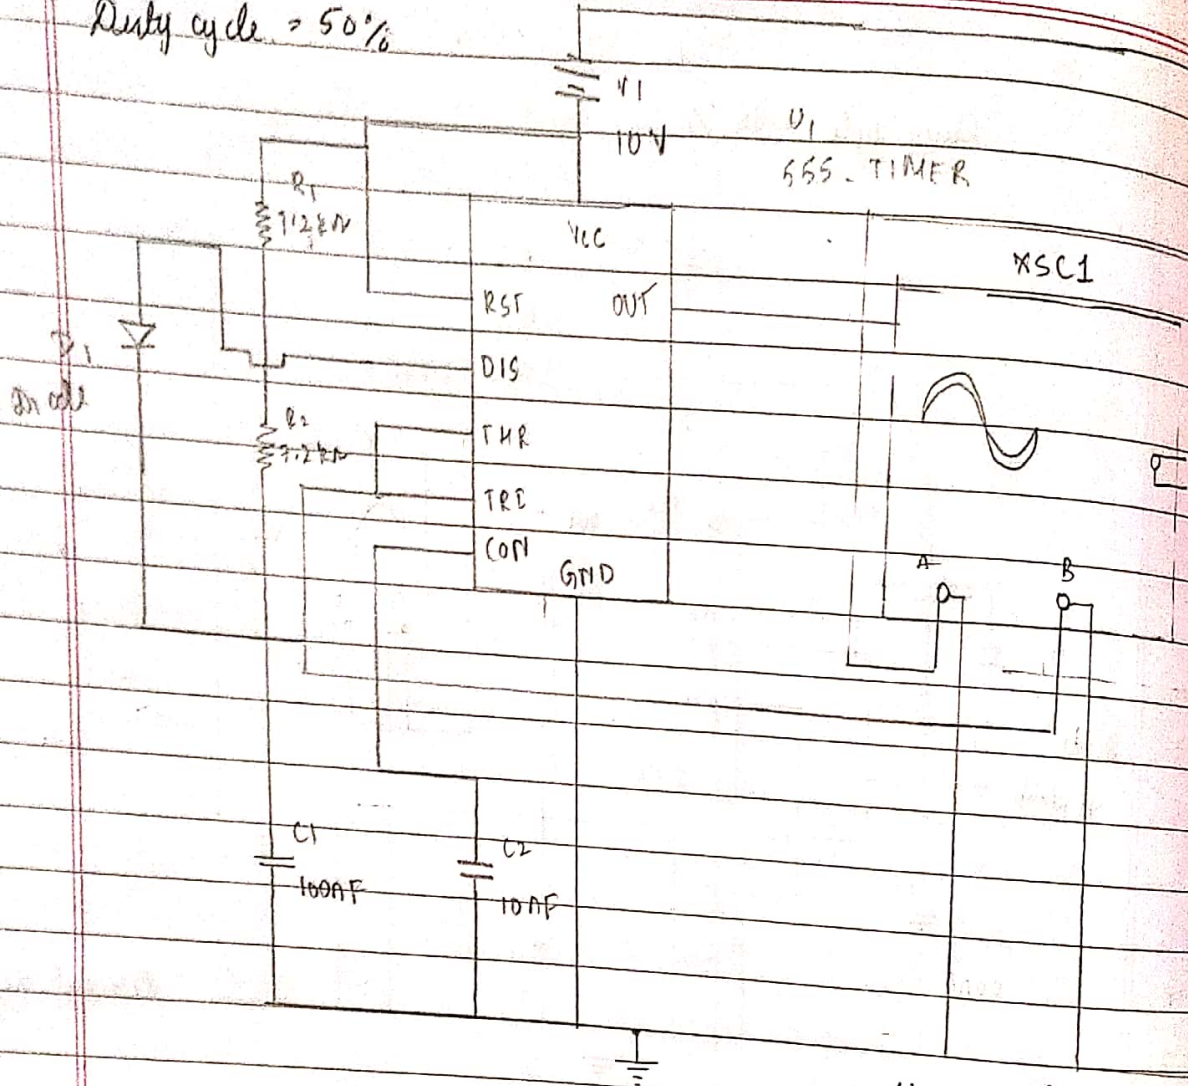 Duty cycle = 50%
V1
10V
U1
555-TIMER
R1
7.2kΩ
VCC
XSC1
RST
OUT
DIS
D1
Diode
R2
7.2kΩ
THR
TRI
CON
GND
A
B
C1
100nF
C2
10nF